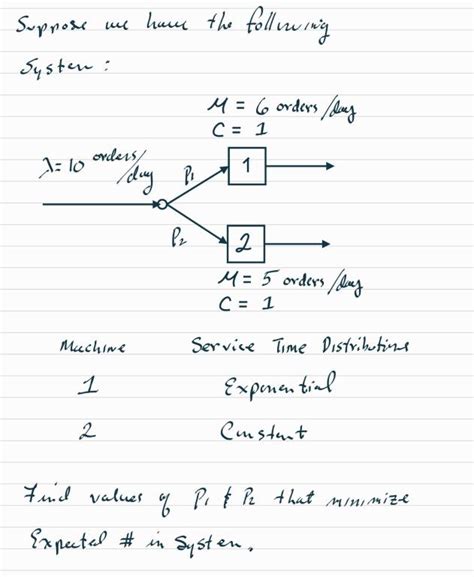 Suppose we have the following
System :
M = 6 orders/day
C = 1
λ = 10 orders/day
P1
1
P2
2
M = 5 orders/day
C = 1
Machine Service Time Distributions
1 Exponential
2 Constant
Find values of P1 & P2 that minimize
Expected # in System.